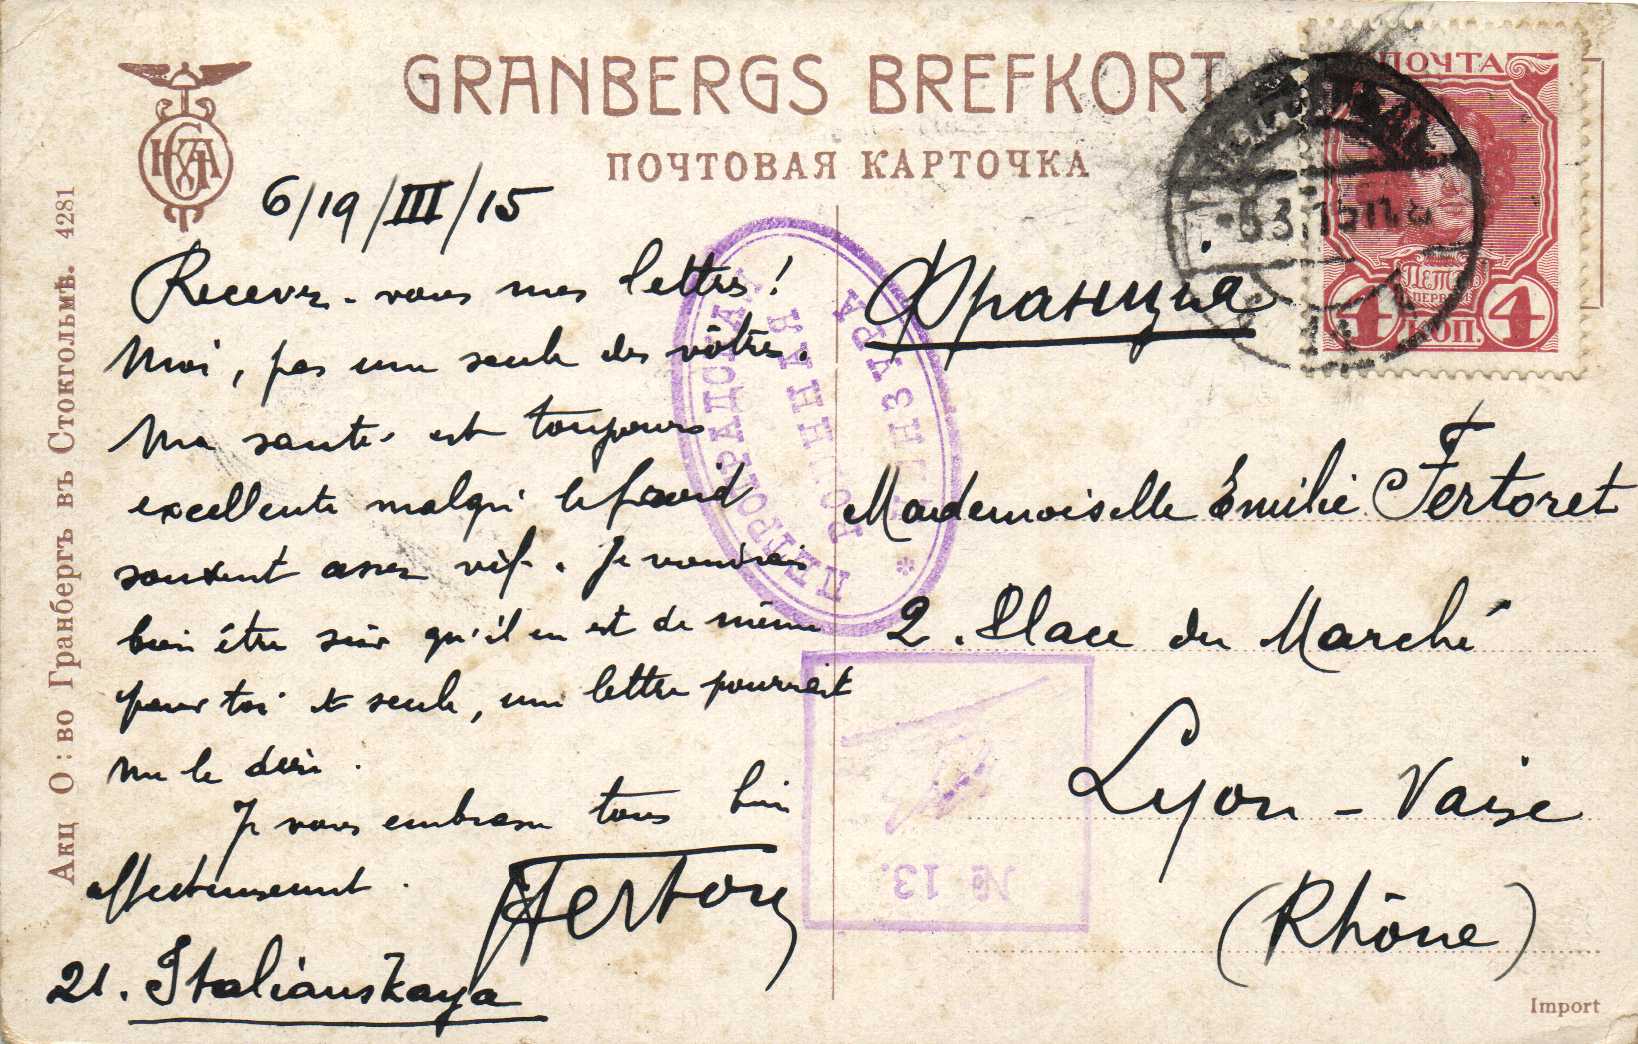 GRANBERGS BREFKORT
ПОЧТОВАЯ КАРТОЧКА
Акц О:во Гранбергъ въ Стокгольмѣ. 4281
6/19/III/15
Recevez-vous mes lettres!
Moi, pas une seule des vôtres.
Ma santé est toujours
excellente malgré le froid
souvent assez vif. Je voudrais
bien être sûr qu'il en est de même
pour toi et seule, une lettre pourrait
me le dire.
Je vous embrasse tous bien
affectueusement.
21. Italianskaya
ПЕТРОГРАДСКАЯ
ВОЕННАЯ
ЦЕНЗУРА
*
№ 13.
ПОЧТА
ПЕТРЪ
ПЕРВЫЙ
4 КОП. 4
Франція
Mademoiselle Emilie Fertoret
2. Place du Marché
Lyon - Vaise
(Rhône)
Import